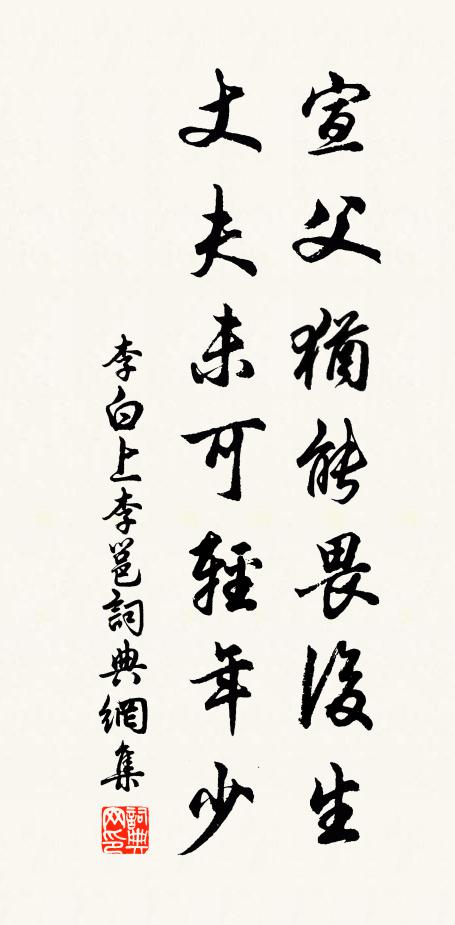 宣父猶能畏後生
丈夫未可輕年少
李白上李邕詞典網集
詞典网印